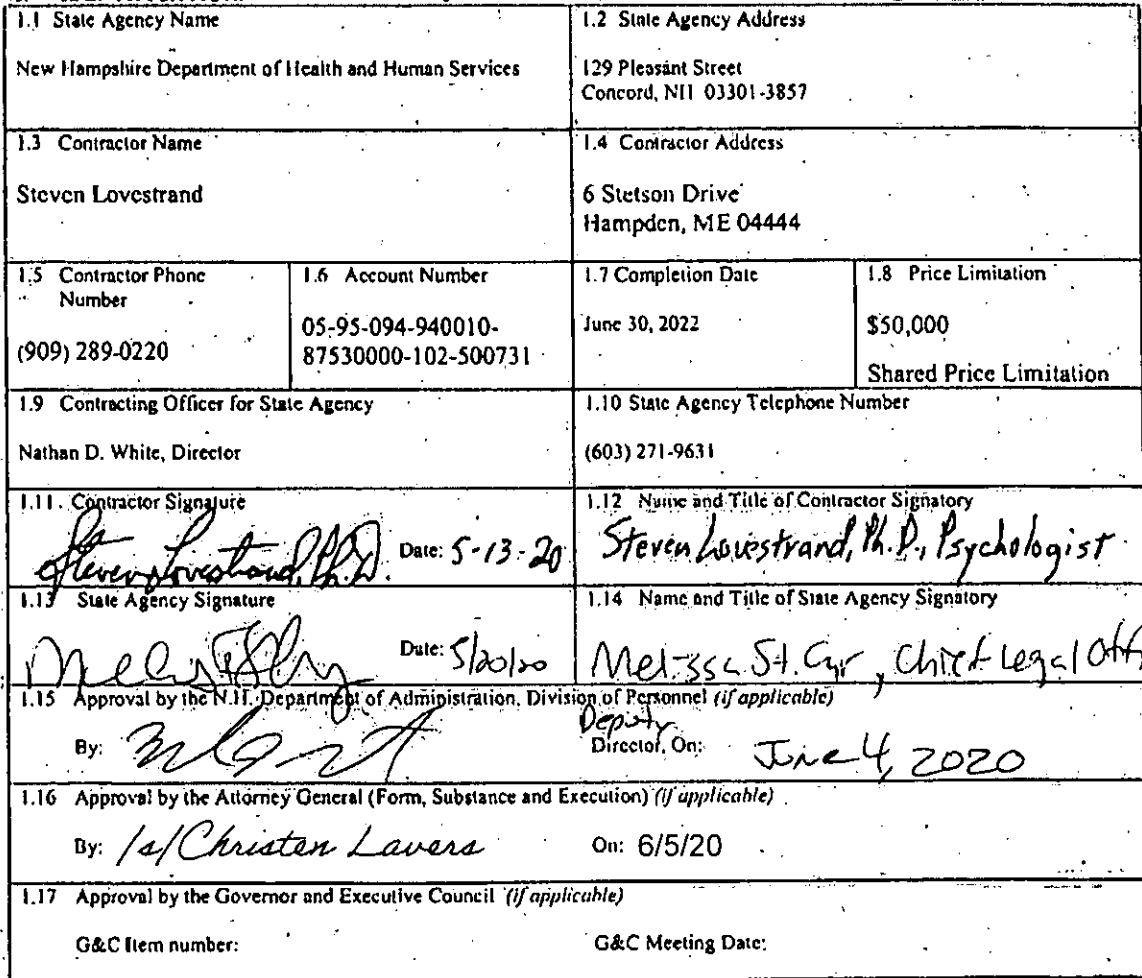 1.1 State Agency Name
New Hampshire Department of Health and Human Services
1.2 State Agency Address
129 Pleasant Street
Concord, NH 03301-3857
1.3 Contractor Name
Steven Lovestrand
1.4 Contractor Address
6 Stetson Drive
Hampden, ME 04444
1.5 Contractor Phone
Number
(909) 289-0220
1.6 Account Number
05-95-094-940010-
87530000-102-500731
1.7 Completion Date
June 30, 2022
1.8 Price Limitation
$50,000
Shared Price Limitation
1.9 Contracting Officer for State Agency
Nathan D. White, Director
1.10 State Agency Telephone Number
(603) 271-9631
1.11. Contractor Signature
Steven Lovestrand, Ph.D. Date: 5-13-20
1.12 Name and Title of Contractor Signatory
Steven Lovestrand, Ph.D., Psychologist
1.13 State Agency Signature
Date: 5/20/20
1.14 Name and Title of State Agency Signatory
Melissa St. Cyr, Chief Legal Off
1.15 Approval by the N.H. Department of Administration, Division of Personnel (if applicable)
By:
Deputy
Director, On: June 4, 2020
1.16 Approval by the Attorney General (Form, Substance and Execution) (if applicable)
By: /s/ Christen Lavers On: 6/5/20
1.17 Approval by the Governor and Executive Council (if applicable)
G&C Item number: G&C Meeting Date: